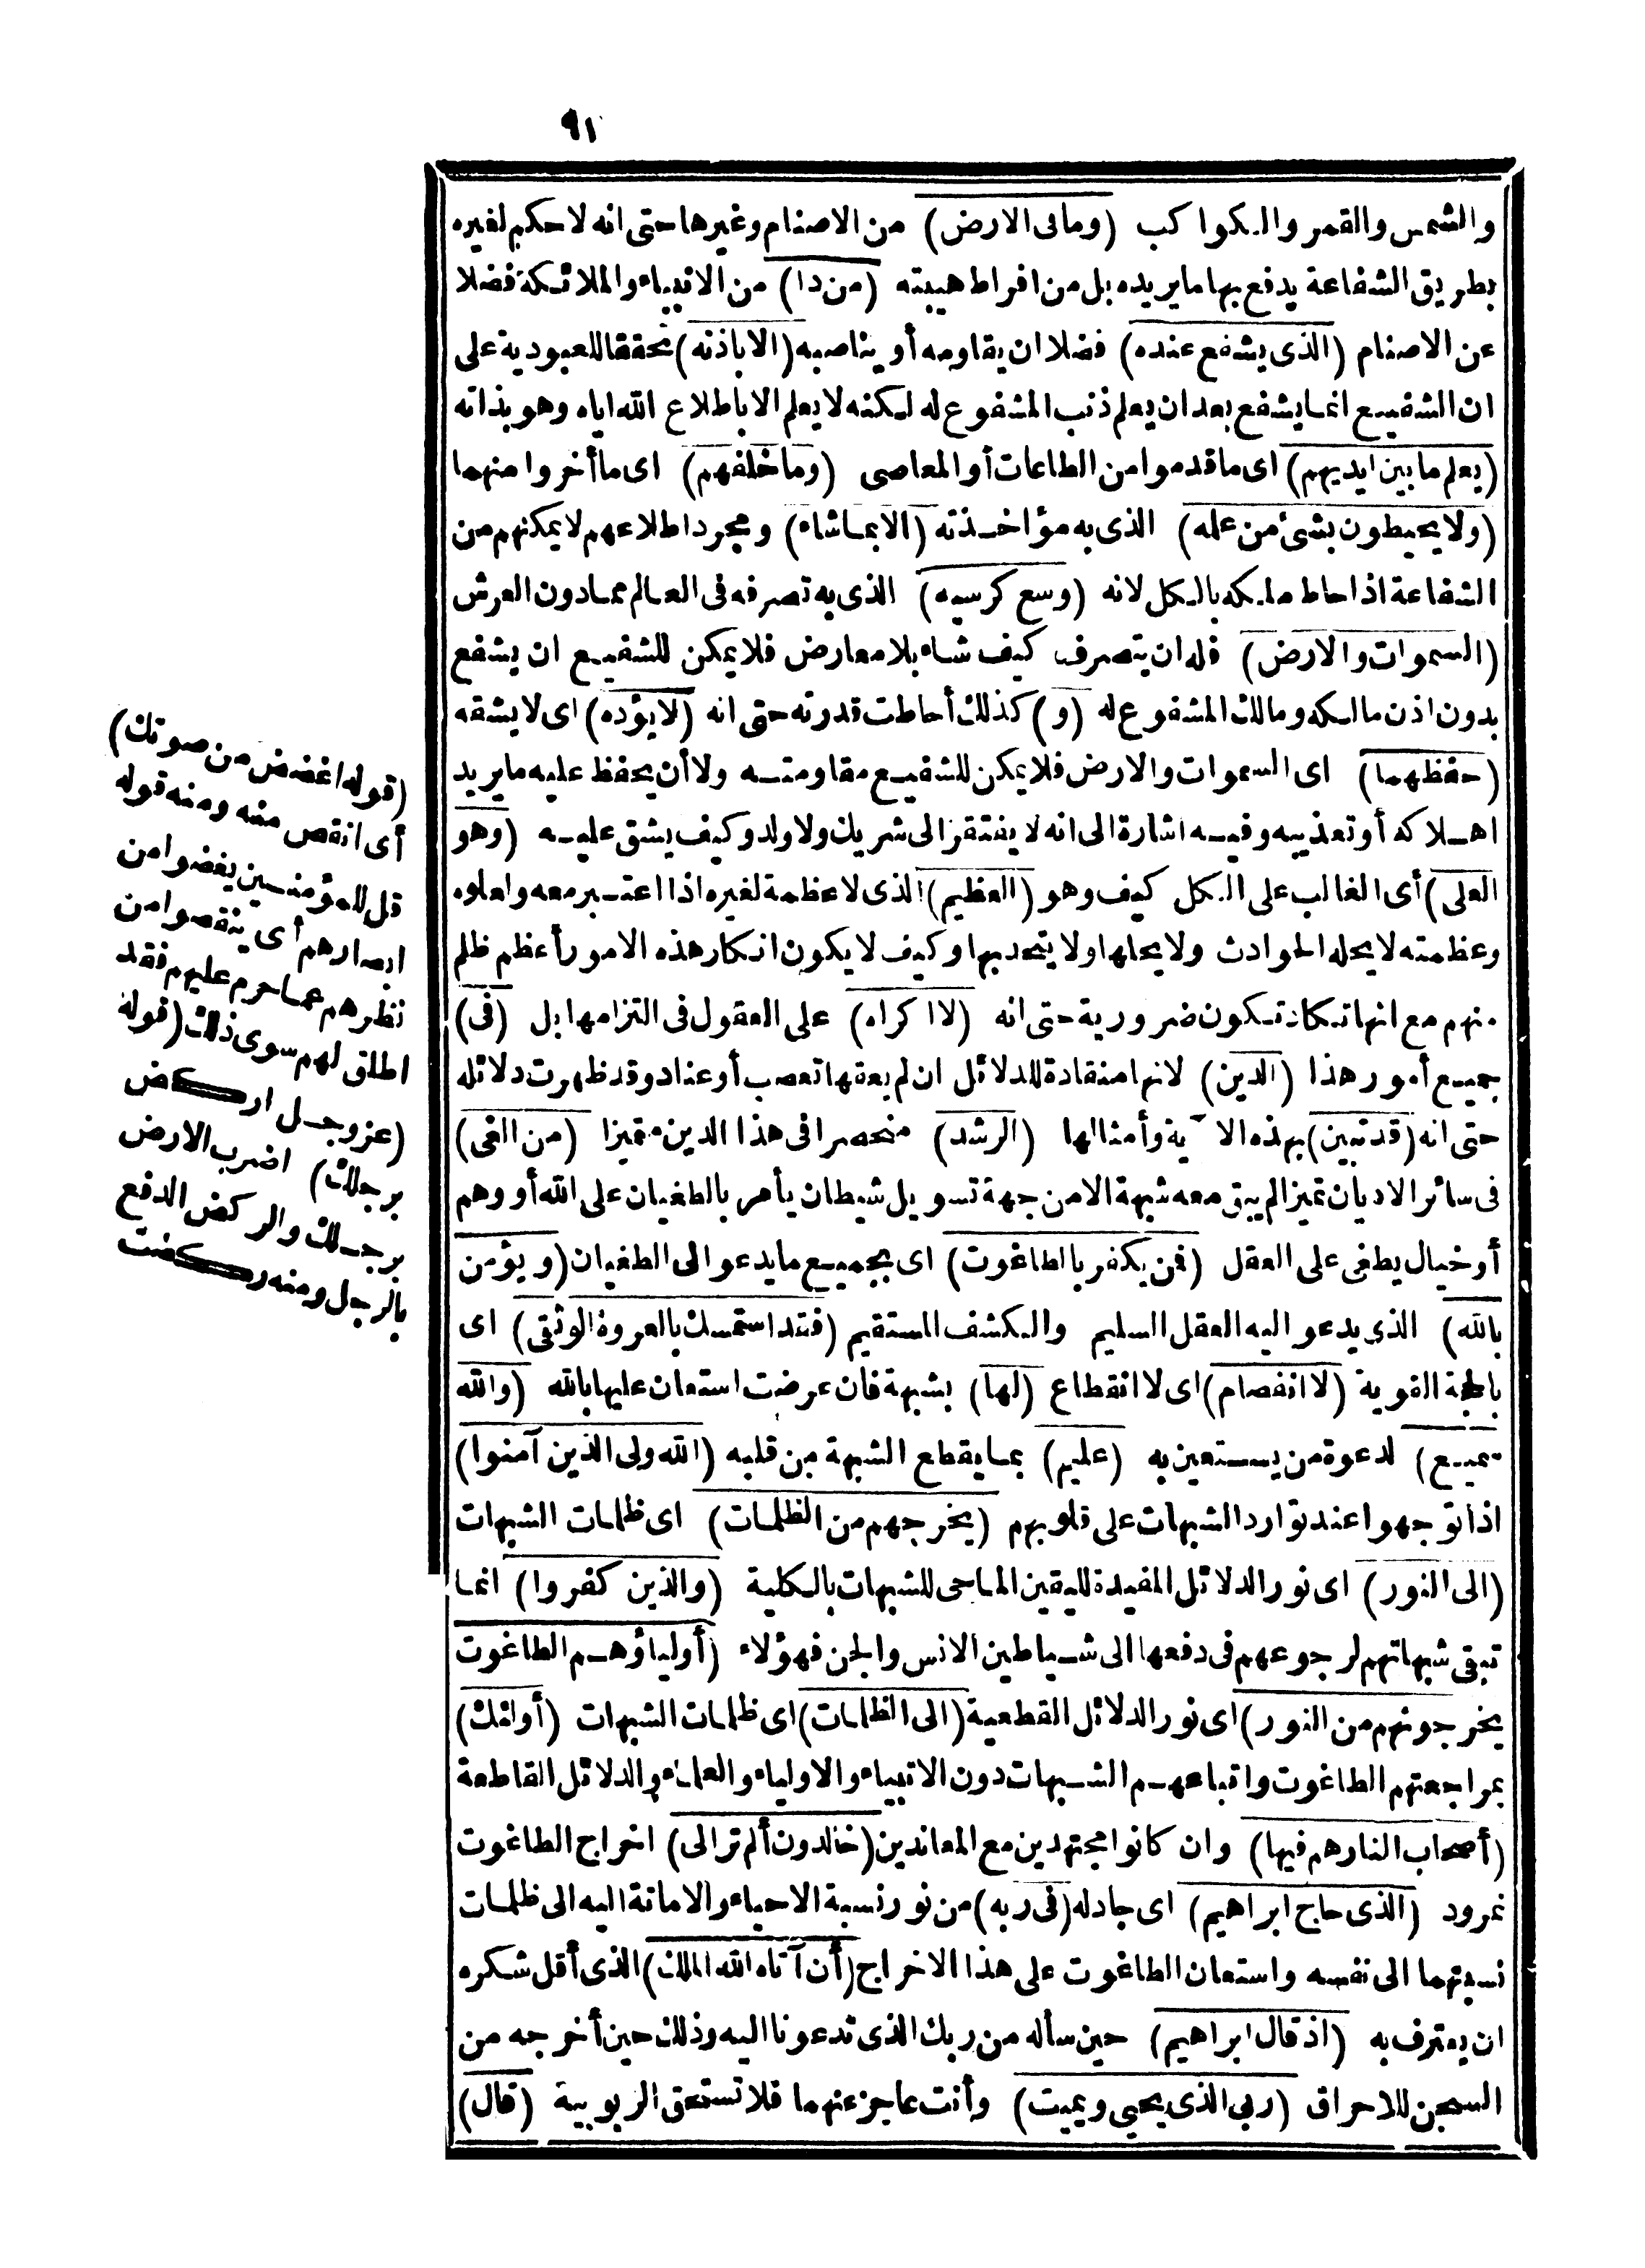 ٩١
والشمس والقمر والكواكب (وما فى الارض) من الاصنام وغيرها حتى انه لا حكم لغيره
بطريق الشفاعة يدفع بها ما يريده بل من افراط هيبته (من ذا) من الانبياء والملائكة فضلا
عن الاصنام (الذى يشفع عنده) فضلا ان يقاومه أو يناصبه (الا باذنه) تحققا للعبودية على
ان الشفيع انما يشفع بعد ان يعلم ذنب المشفوع له لكنه لا يعلم الا باطلاع الله اياه وهو بذاته
(يعلم ما بين ايديهم) اى ما قدموا من الطاعات أو المعاصى (وما خلفهم) اى ما أخروا منهما
(ولا يحيطون بشئ من علمه) الذى به مؤاخذته (الا بما شاء) ومجرد اطلاعهم لا يمكنهم من
الشفاعة اذ احاط ملكه بالكل لانه (وسع كرسيه) الذى به تصرفه فى العالم مما دون العرش
(السموات والارض) فله ان يتصرف كيف شاء بلا معارض فلا يمكن للشفيع ان يشفع
بدون اذن مالكه ومالك المشفوع له (و) كذلك أحاطت قدرته حتى انه (لا يؤده) اى لا يشقه
(حفظهما) اى السموات والارض فلا يمكن للشفيع مقاومته ولا أن يحفظ عليه ما يريد
اهلاكه أو تعذيبه وفيه اشارة الى انه لا يفتقر الى شريك ولا ولد وكيف يشق عليه (وهو
العلى) أى الغالب على الكل كيف وهو (العظيم) الذى لا عظمة لغيره اذا اعتبر معه ولعلوه
وعظمته لا يحله الحوادث ولا يحلها ولا يتحد بها وكيف لا يكون انكار هذه الامور أعظم ظلم
منهم مع انها تكاد تكون ضرورية حتى انه (لا اكراه) على العقول فى التزامها بل (فى)
جميع أمور هذا (الدين) لانها منقادة للدلائل ان لم يعقها تعصب أو عناد وقد ظهرت دلائله
حتى انه (قد تبين) بهذه الآية وأمثالها (الرشد) منحصرا فى هذا الدين متميزا (من الغى)
فى سائر الاديان تميزا لم يبق معه شبهة الا من جهة تسويل شيطان يأمر بالطغيان على الله أو وهم
أو خيال يطغى على العقل (فمن يكفر بالطاغوت) اى بجميع ما يدعو الى الطغيان (ويؤمن
بالله) الذى يدعو اليه العقل السليم والكشف المستقيم (فقد استمسك بالعروة الوثقى) اى
بالحجة القوية (لا انفصام) اى لا انقطاع (لها) بشبهة فان عرضت استعان عليها بالله (والله
سميع) لدعوة من يستعين به (عليم) بما يقطع الشبهة من قلبه (الله ولى الذين آمنوا)
اذا توجهوا عند توارد الشبهات على قلوبهم (يخرجهم من الظلمات) اى ظلمات الشبهات
(الى النور) اى نور الدلائل المفيدة لليقين الماحى للشبهات بالكلية (والذين كفروا) انما
تبقى شبهاتهم لرجوعهم فى دفعها الى شياطين الانس والجن فهؤلاء (أولياؤهم الطاغوت
يخرجونهم من النور) اى نور الدلائل القطعية (الى الظلمات) اى ظلمات الشبهات (أولئك)
بمراجعتهم الطاغوت واتباعهم الشبهات دون الانبياء والاولياء والعلماء والدلائل القاطعة
(أصحاب النار هم فيها) وان كانوا مجتهدين مع المعاندين (خالدون ألم تر الى) اخراج الطاغوت
نمرود (الذى حاج ابراهيم) اى جادله (فى ربه) من نور نسبة الاحياء والاماتة اليه الى ظلمات
نسبتهما الى نفسه واستعان الطاغوت على هذا الاخراج (أن آتاه الله الملك) الذى أقل شكره
ان يعترف به (اذ قال ابراهيم) حين سأله من ربك الذى تدعونا اليه وذلك حين أخرجه من
السجن للاحراق (ربى الذى يحيى ويميت) وأنت عاجز عنهما فلا تستحق الربوبية (قال)
(قوله اغضض من صوتك)
أى انقص منه ومنه قوله
قل للمؤمنين يغضوا من
ابصارهم أى ينقصوا من
نظرهم عما حرم عليهم فقد
اطلق لهم سوى ذلك (قوله
(عز وجل اركض
برجلك) اضرب الارض
برجلك والركض الدفع
بالرجل ومنه ركضت